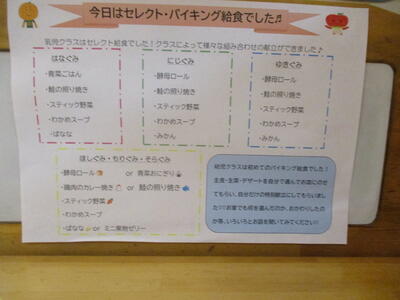 今日はセレクト・バイキング給食でした♬
乳児クラスはセレクト給食でした！クラスによって様々な組み合わせの献立ができました♪
はなぐみ
・青菜ごはん
・鮭の照り焼き
・スティック野菜
・わかめスープ
・ばなな
にじぐみ
・酵母ロール
・鮭の照り焼き
・スティック野菜
・わかめスープ
・みかん
ゆきぐみ
・酵母ロール
・鮭の照り焼き
・スティック野菜
・わかめスープ
・みかん
ほしぐみ・もりぐみ・そらぐみ
・酵母ロール or 青菜おにぎり
・鶏肉のカレー焼き or 鮭の照り焼き
・スティック野菜
・わかめスープ
・ばなな or ミニ果物ゼリー
幼児クラスは初めてのバイキング給食でした！
主食・主菜・デザートを自分で選んでお皿にのせ
てもらい、自分だけの特別献立にしてもらいまし
た！！お家でも何を選んだのか、おかわりしたの
か等、いろいろとお話を聞いてみてください